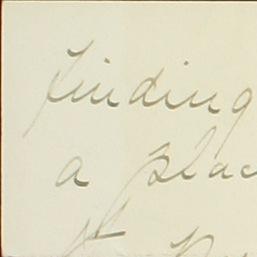 finding
a plac